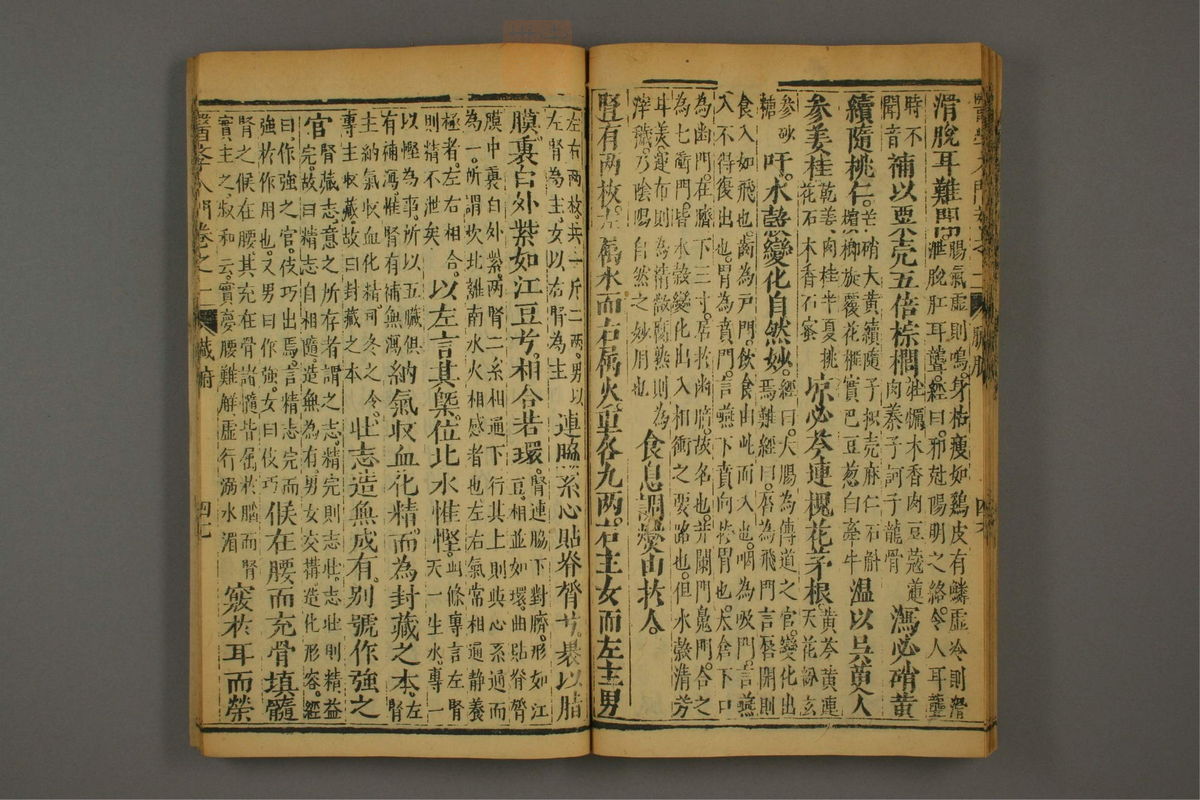 醫學入門卷之一 臟腑 四六
滑脫耳難聞
腸氣虛則鳴身枯瘦如鷄皮有鱗虛冷則滑
泄脫肛耳聾經曰邪冦陽明之絡令人耳聾
時不
聞音
補以粟壳五倍棕櫚
牡蠣木香肉豆蔻蓮
肉蓁子訶子龍骨
瀉必硝黃
續隨桃仁
芒硝大黃續隨子枳壳麻仁石斛
檳榔旋覆花榧實巴豆葱白牽牛
溫以吳黃人
參姜桂
乾姜肉桂半夏桃
花石木香石蜜
凉必芩連槐花茅根
黃芩黃連
天花粉玄
參砂
糖
吁水穀變化自然妙
經曰大腸為傳道之官變化出
焉難經曰唇為飛門言唇開則
食入如飛也齒為戶門飲食由此而入也咽為吸門言嚥
入不得復出也胃為賁門言嚥下賁向於胃也太倉下口
為幽門在臍下三寸居於幽暗故名也并闌門魄門合之
為七衝門皆水穀變化出入相衝之要路也但水穀清芳
耳美運布則為清敵腐熟則為
滓穢乃陰陽自然之妙用也
食息調燮由於人
腎有两枚左屬水而右屬火重各九两右主女而左主男
左右两枚共一斤二两男以
左腎為主女以右腎為主
連脇系心貼脊膂兮裹以脂
膜裏白外紫如江豆兮相合若環
腎連脇下對臍形如江
豆相並如環曲貼脊膂
膜中裏白外紫两腎二系相通下行其上則與心系通而
為一所謂坎北離南水火相感者也左右氣常相通静養
極者左右相合
則精不泄矣
以左言其槩位北水惟慳
此條專言左腎
天一生水專一
以慳為事所以五臟俱
有補瀉惟腎有補無瀉
納氣收血化精而為封藏之本
左腎
主納氣收血化精司冬之令
專主收藏故曰封藏之本
壮志造無成有別號作強之
官
腎藏志意之所存者謂之志精完則志壮志壮則精益
完故曰精志自相隨造無為有男女交搆造化形容經
曰作強之官伎巧出焉言精志完而
強於作用也又男曰作強女曰伎巧
候在腰而充骨填髓
腎之候在腰其充在骨諸髓皆屬於腦而腎
實主之歌和云實夢腰難解虛行溺水湄
竅於耳而榮
醫學入門卷之一 臟腑 四七